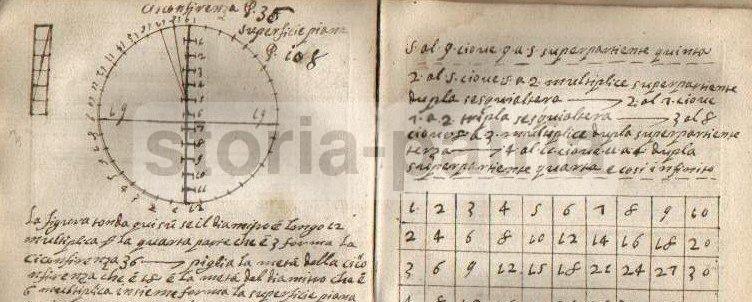 Circonfirenza P. 36
superficie piana
P. 108
18 18
1 2 3 4 5 6 7 8 9 10 11 12
La figura tonda qui sù se il diamitro è longo 12
multiplica p la quarta parte che è 3 forma la
circonfirenza 36 piglia la metà della circo
nfirenza che è 18 e la metà del diamitro che è
6 multiplica insieme forma la superficie piana
5 al 9 cioue 9 a 5 superpartiente quinta
2 al 5 cioue 5 a 2 multiplice superpartiente
dupla sesquialtera 2 al 7 cioue
7 a 2 tripla sesquialtera 3 al 8
cioue 8 a 3 multiplice dupla superpartiente
terza 4 al cioue a 4 dupla
superpartiente quarta e cosi infinito
1 2 3 4 5 6 7 8 9 10
2 4 6 8 10 12 14 16 18 20
3 6 9 12 15 18 21 24 27 30
storia-p